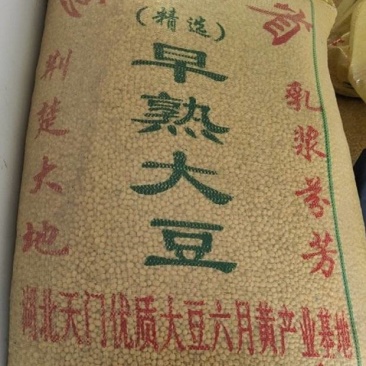 （精选）
早熟大豆
荆楚大地
乳浆芬芳
湖北天门优质大豆六月黄产业基地